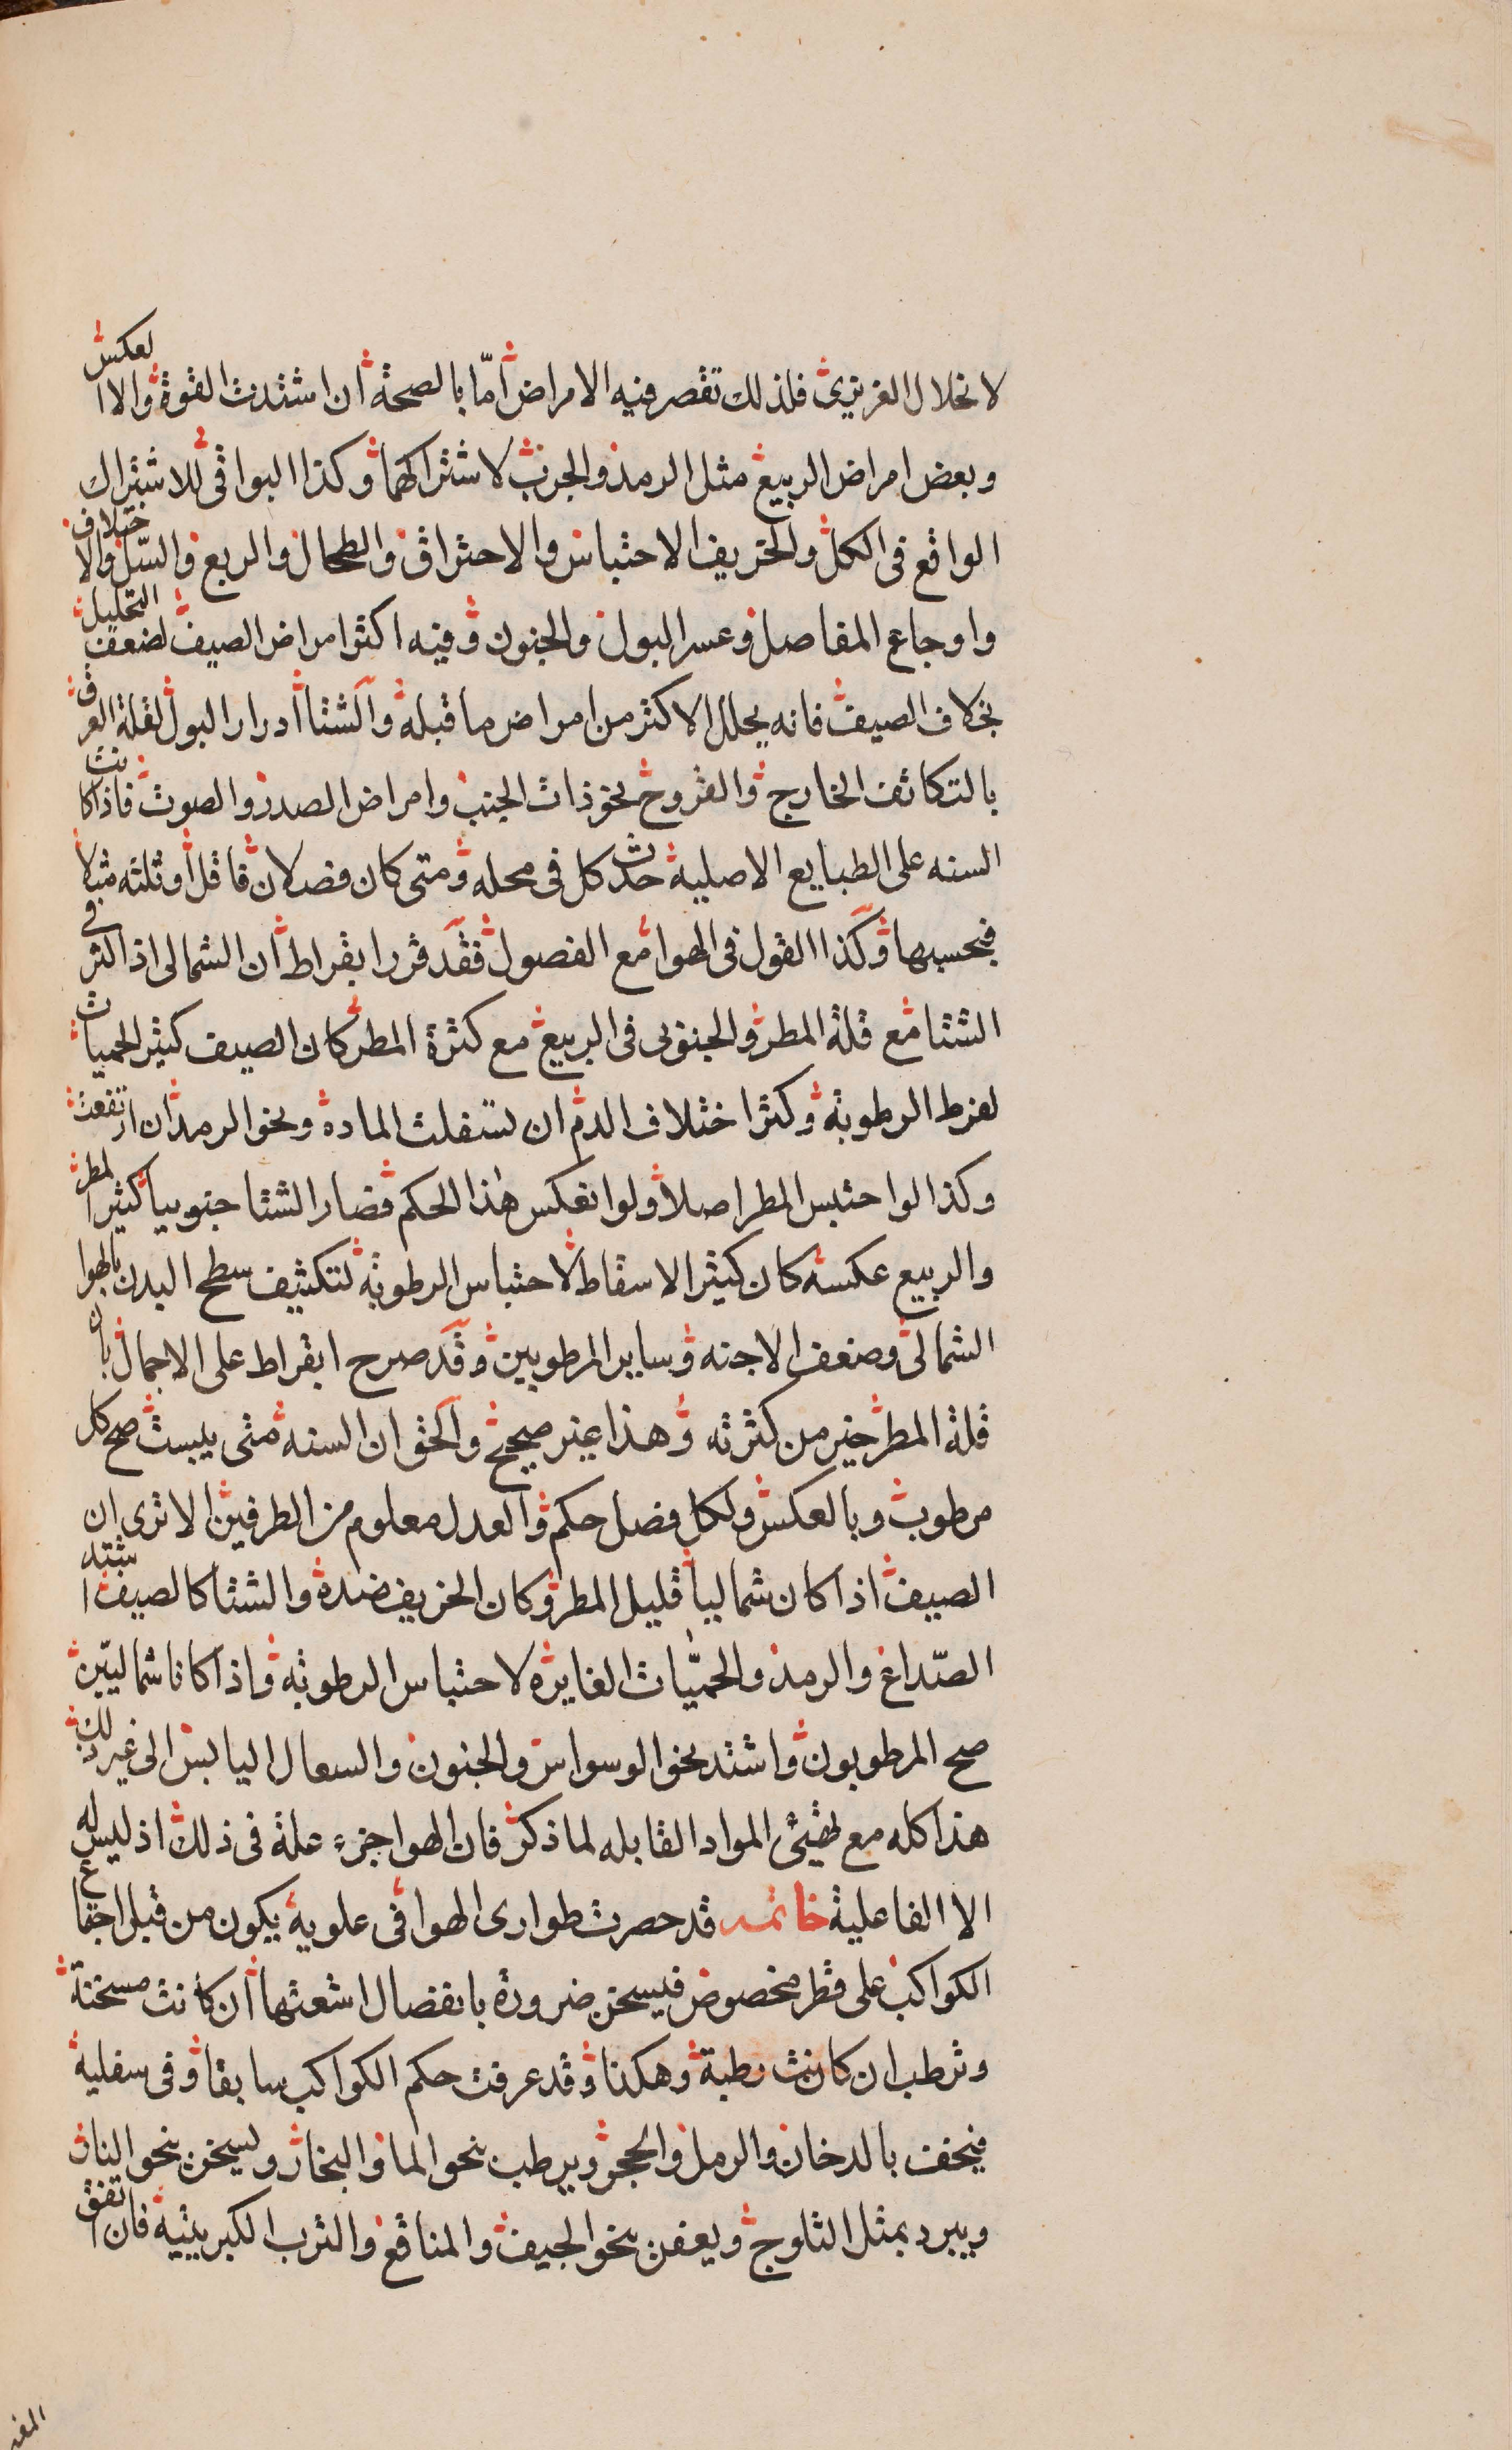 لانحلال الغريزى فلذلك تقصر فيه الامراض امّا بالصحة ان اشتدت القوة والا العكس
وبعض امراض الربيع مثل الرمد والجرب لاشتراكهما وكذا البواقى للاشتراك
الواقع فى الكل والخريف الاحتباس والاحتراق والطحال والربع والسّل والاختلاف
واوجاع المفاصل وعسر البول والجنون وفيه اكثر امراض الصيف لضعف التحليل
بخلاف الصيف فانه يحلل الاكثر من امراض ما قبله والشتا ادرار البول لقلة العرق
بالتكاثف الخارج والقروح نحو ذات الجنب وامراض الصدر والصوت فاذا كانت
السنه على الطبايع الاصلية حدث كل فى محله ومتى كان فصلان فاقل او ثلثه مثلا
فبحسبها وكذا القول فى الهوا مع الفصول فقد قرر ابقراط ان الشمالى اذا اكثر فى
الشتا مع قلة المطر والجنوبى فى الربيع مع كثرة المطر كان الصيف كثير الحميات
لفرط الرطوبة وكثر اختلاف الدم ان تسفلت المادة ونحو الرمد ان ارتفعت
وكذا لو احتبس المطر اصلا ولو انعكس هذا الحكم فصار الشتا جنوبيا كثير المطر
والربيع عكسه كان كثير الاسقاط لاحتباس الرطوبة لتكثيف سطح البدن بالهوا
الشمالى وضعف الاجنه وساير المرطوبين وقد صرح ابقراط على الاجمال بان
قلة المطر خير من كثرته وهذا غير صحيح والحق ان السنه متى يبست صح كل
مرطوب وبالعكس ولكل فصل حكم والعدل معلوم من الطرفين الا ترى ان
الصيف اذا كان شماليا قليل المطر وكان الخريف ضده والشتا كالصيف اشتد
الصّداع والرمد والحميّات الغايرة لاحتباس الرطوبة واذا كانا شماليّين
صح المرطوبون واشتد نحو الوسواس والجنون والسعال اليابس الى غير ذلك
هذا كله مع تهيئ المواد القابله لما ذكر فان الهوا جزء علة فى ذلك اذ ليس له
الا الفاعلية خاتمه قد حصرت طوارى الهوا فى علوية يكون من قبل اجتماع
الكواكب على قطر مخصوص فيسخن ضرورة بانفصال اشعتها ان كانت مسخنة
وترطب ان كانت رطبة وهكذا وقد عرفت حكم الكواكب سابقا وفى سفلية
فيجفف بالدخان والرمل والحجر ويرطب بنحو الما والبخار ويسخن بنحو النار
ويبرد بمثل الثلوج ويعفن بنحو الجيف والمناقع والترب الكبريتية فان اتفق